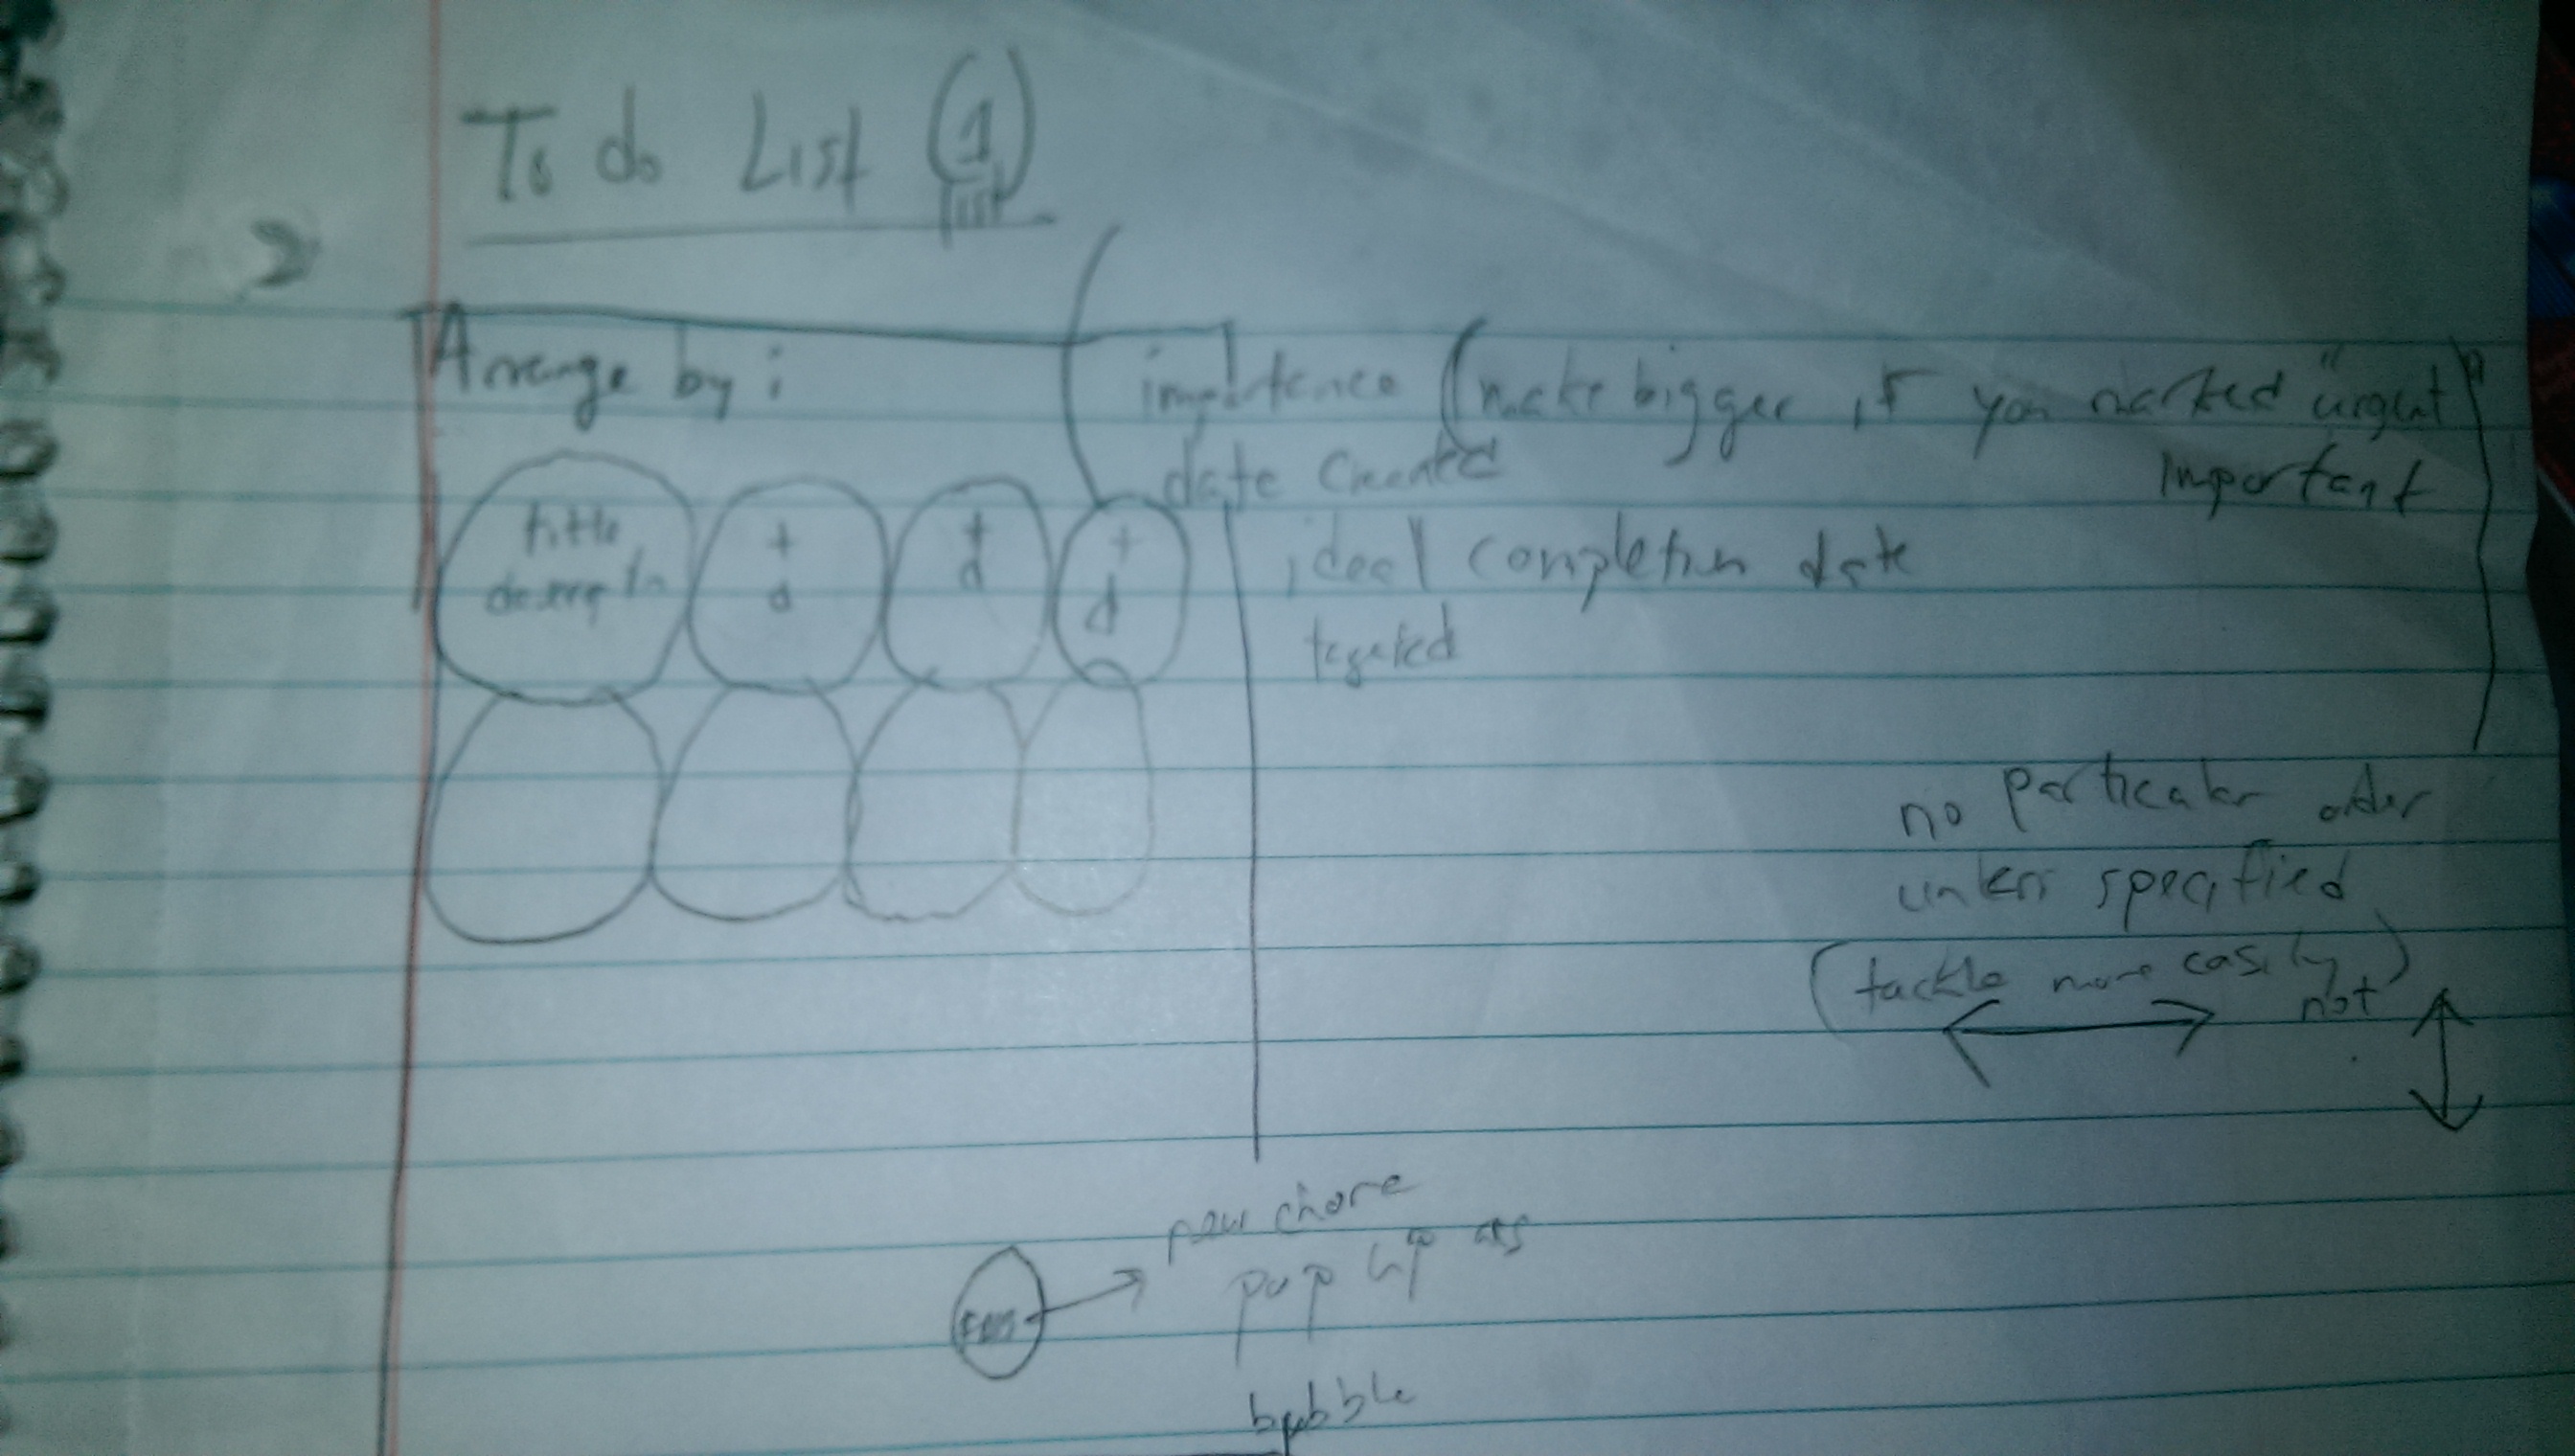 To do List (1)
list
2
Arrange by :
importance (make bigger if you marked "urgent"
important
date created
ideal completion date
targeted
title
t
t
t
d
d
d
no particular order
unless specified
(tackle more easily)
not
new chore
pop up as
bubble